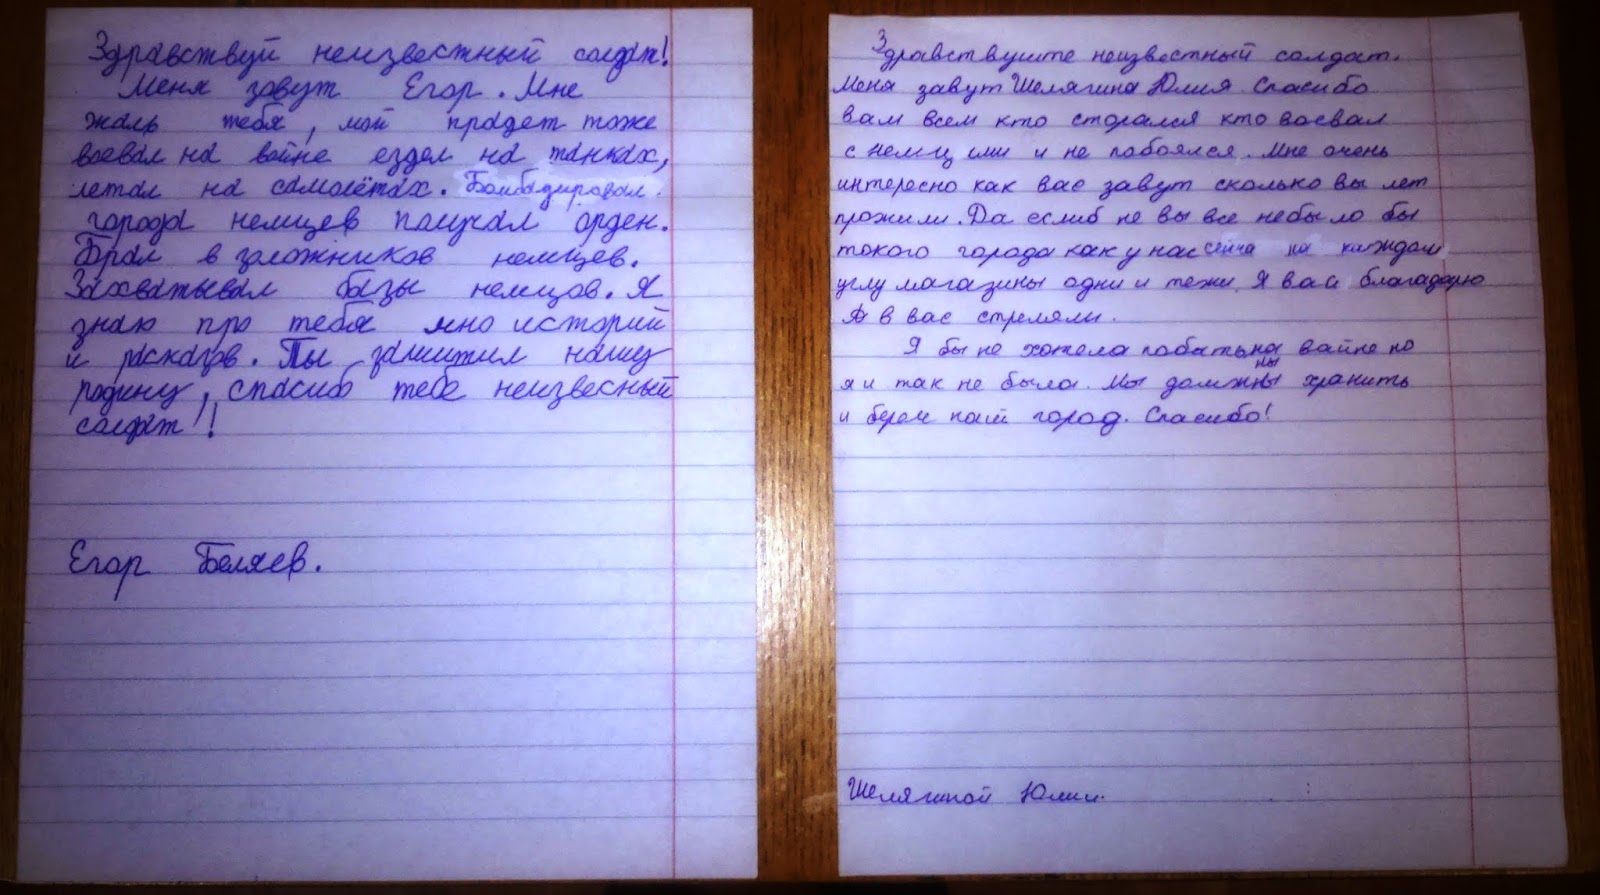 Здравствуй неизвестный солдат!
Меня зовут Егор. Мне
жаль тебя, мой прадет тоже
воевал на войне ездел на танках,
летал на самолётах. Бомбадировал
города немцев получал орден.
Брал в заложников немцев.
Захватывал базы немцов. Я
знаю про тебя мно историй
и расказов. Ты зашитил нашу
родину, спасиб тебе неизвесный
солдат!!
Егор Беляев.
Здравствуште неизвестный солдат.
Меня завут Шелягина Юлия Спасибо
вам всем кто сторался кто воевал
с немцами и не побоялся. Мне очень
интересно как вас завут сколько вы лет
прожили. Да еслиб не вы все небыло бы
токого города как у нас сейча на каждом
углу магазины одни и тежи. Я вас благадарю
А в вас стреляли.
Я бы не хотела побыть на вайне но
я и так не была. Мы должны хранить
ны
и береч наш город. Спасибо!
Шелягиной Юлии.